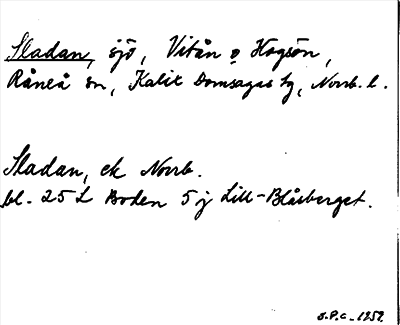 Sladan, sjö, Vitån o Högsön,
Råneå sn, Kalix Domsagas tg, Norrb. l.
Sladan, ek Norrb.
bl. 25 L Boden 5 j Lill-Blåberget.
J.P.C. 1959